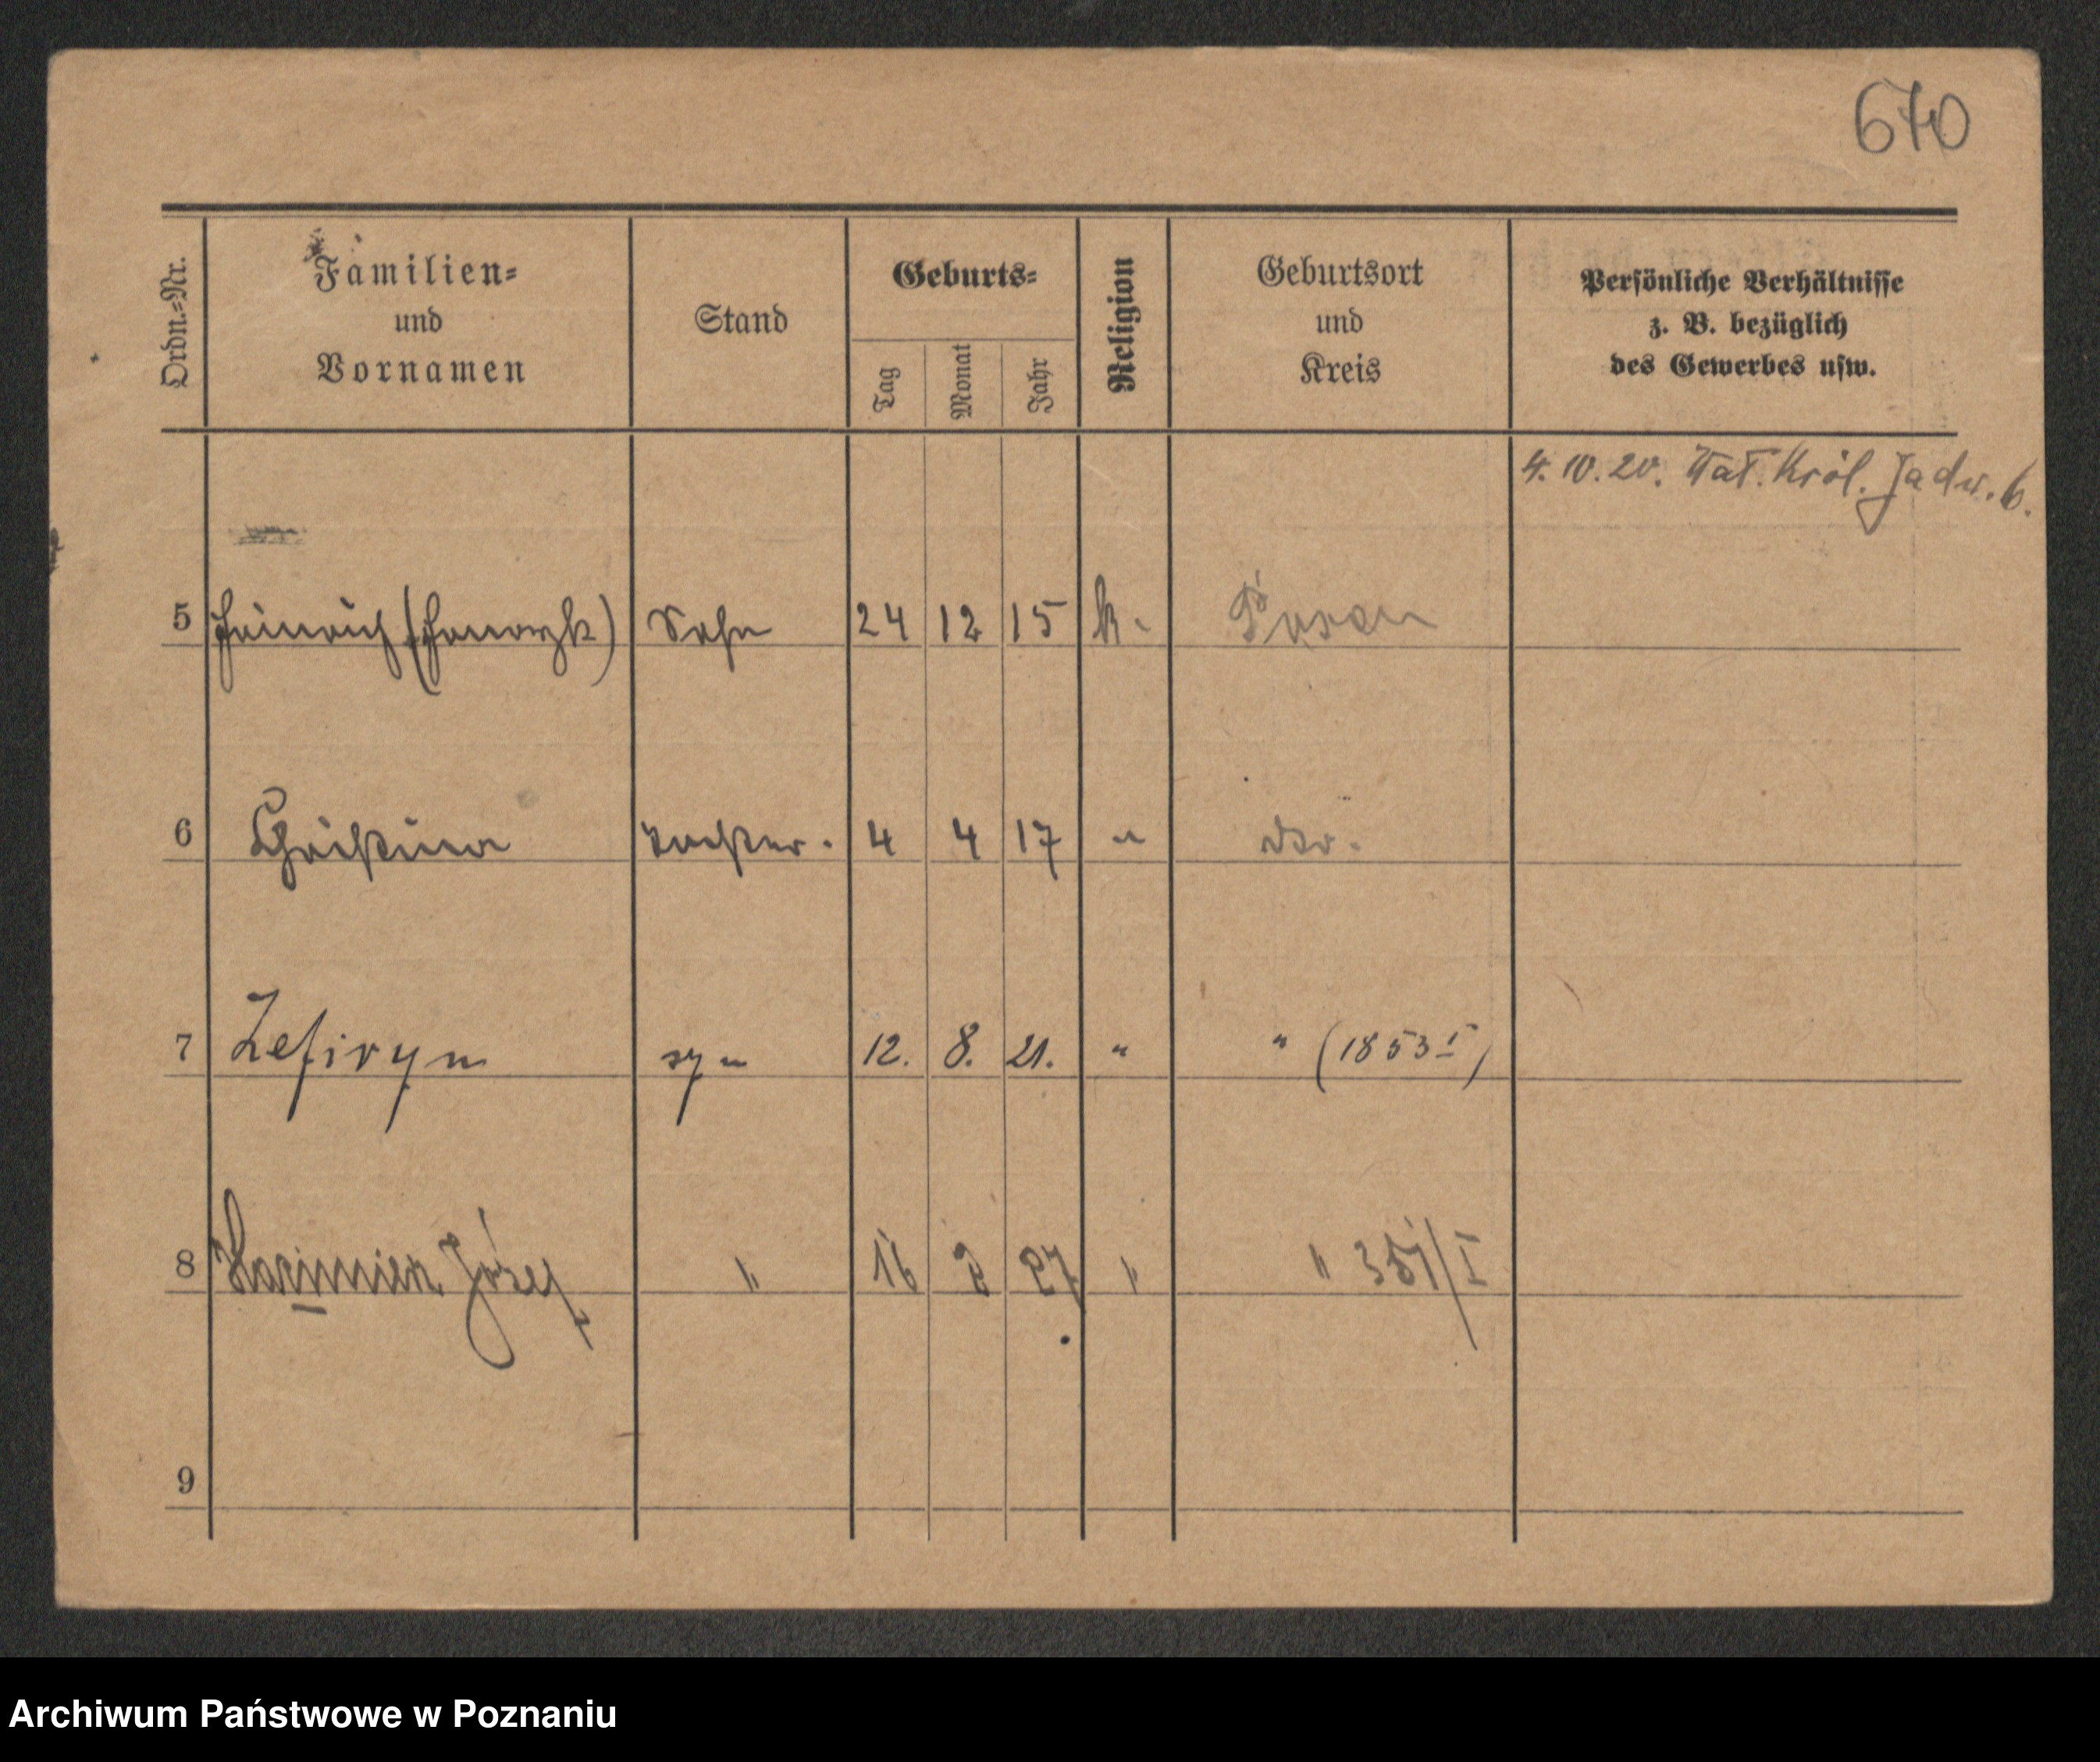 670
Ordn.=Nr.
Familien=
und
Vornamen
Stand
Geburts=
Tag
Monat
Jahr
Religion
Geburtsort
und
Kreis
Persönliche Verhältnisse
z. B. bezüglich
des Gewerbes usw.
4. 10. 20. Król. Jadw. 6.
5 Heinrich (Henryk) Sohn 24 12 15 k. Posen
6 Christina Tochter. 4 4 17 " dto.
7 Zefiryn syn 12. 8. 21. " " (1853 I)
8 Kazimierz Józef " 16 2 27 " " 351/I
9
Archiwum Państwowe w Poznaniu